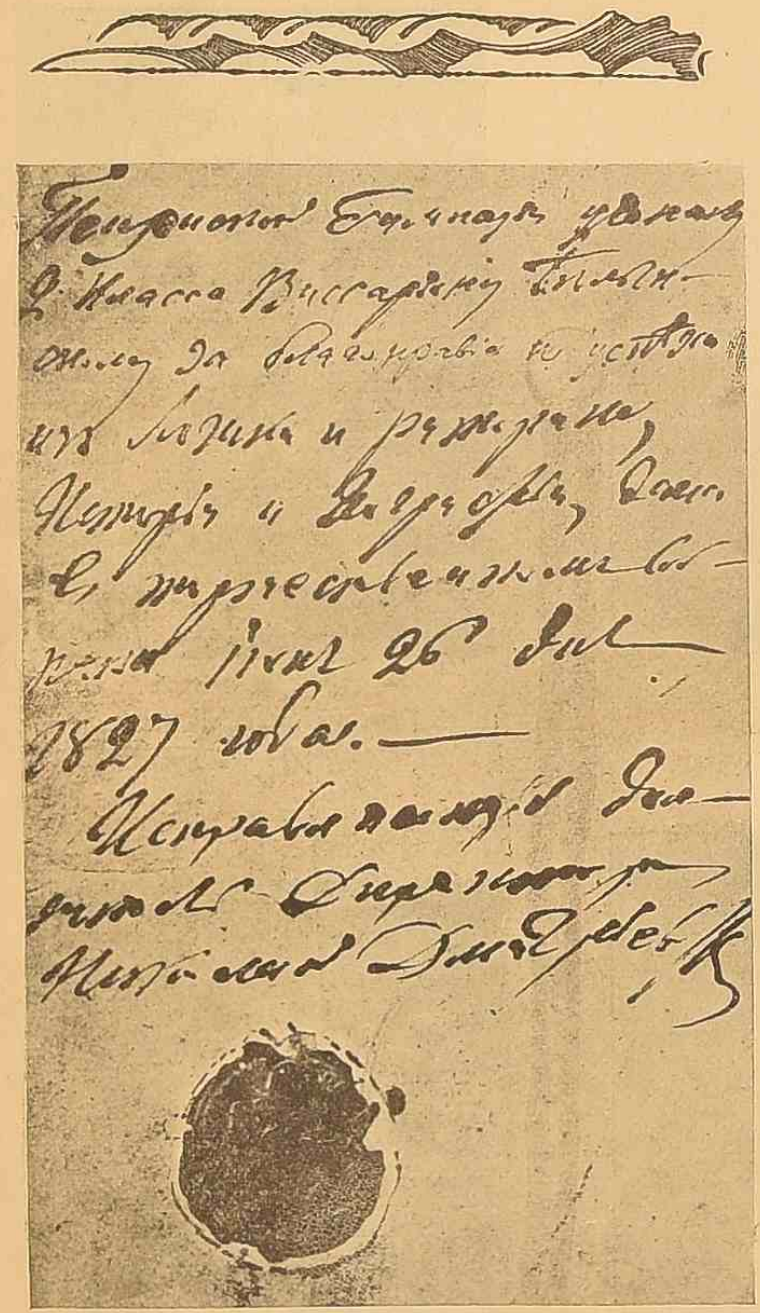 Пензенской Гимназiи ученику
2 Класса Виссарiону Белын-
скому за благонравiе и успѣхи
изъ Логики и реторики,
Исторiи и Географiи, дана
въ торжественномъ со-
бранiи 26 дня
1827 года. —
Исправляющiй дол-
жность Директора
Николай Дмитревск